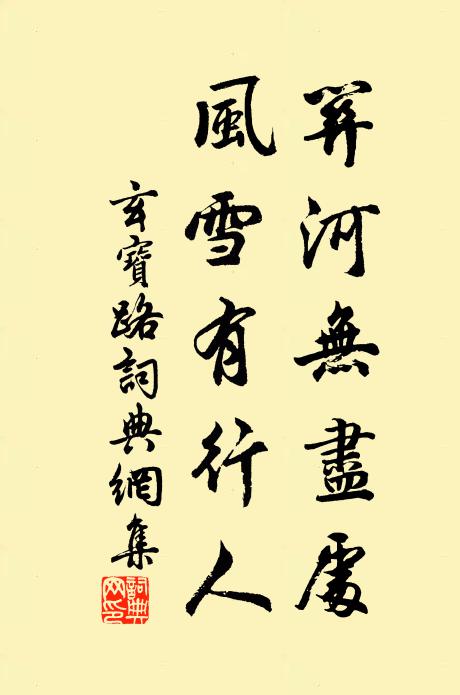 關河無盡處
風雪有行人
玄寶路詞典網集
詞典网印